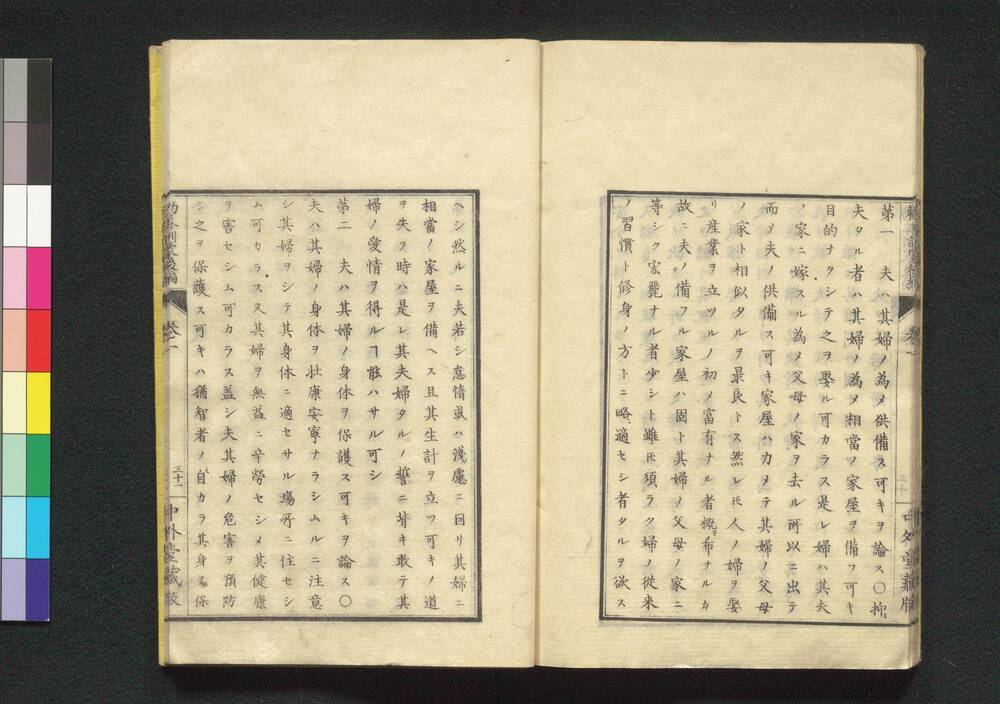 第一　夫ハ其婦ノ為メ供備ス可キヲ論ス○抑
夫タル者ハ其婦ノ為メ相當ノ家屋ヲ備フ可キ
目的ナクシテ之ヲ娶ル可カラス是レ婦ハ其夫
ノ家ニ嫁スル為メ父母ノ家ヲ去ル所以ニ出テ
而メ夫ノ供備ス可キ家屋ハカメテ其婦ノ父母
ノ家ト相似タルヲ最良トス然レ𪜈人ノ婦ヲ娶
リ産業ヲ立ツルノ初メ富有ナル者概希ナルカ
故ニ夫ノ備フル家屋ハ固ト其婦ノ父母ノ家ニ
等シク宏麗ナル者少シト雖𪜈須ラク婦ノ従来
ノ習慣ト修身ノ方トニ略適セシ者タルヲ欲ス
ヘシ然ルニ夫若シ怠惰或ハ淺慮ニ因リ其婦ニ
相當ノ家屋ヲ備ヘス且其生計ヲ立ツ可キノ道
ヲ失ス時ハ是レ其夫婦タルノ誓ニ背キ敢テ其
婦ノ愛情ヲ得ルヿ能ハサル可シ
第二　夫ハ其婦ノ身体ヲ保護ス可キヲ論ス○
夫ハ其婦ノ身体ヲ壮康安寧ナラシムルニ注意
シ其婦ヲシテ其身体ニ適セサル塲所ニ住セシ
ム可カラス又其婦ヲ無益ニ辛勞セシメ其健康
ヲ害セシム可カラス盖シ夫其婦ノ危害ヲ預防
シ之ヲ保護ス可キハ猶智者ノ自カラ其身ヲ保
卷一
三十一
中外堂藏版